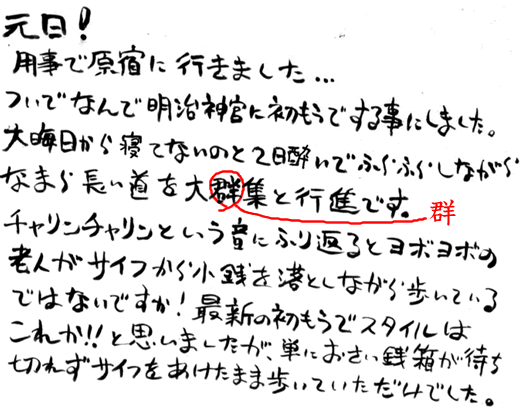 元日!
用事で原宿に行きました…
ついでなんで明治神宮に初もうでする事にしました。
大晦日から寝てないのと2日酔いでふらふらしながら
なまら長い道を大群集と行進です。
群
チャリンチャリンという音にふり返るとヨボヨボの
老人がサイフから小銭を落としながら歩いている
ではないですか!最新の初もうでスタイルは
これか!!と思いましたが、単におさい銭箱が待ち
切れずサイフをあけたまま歩いていただけでした。